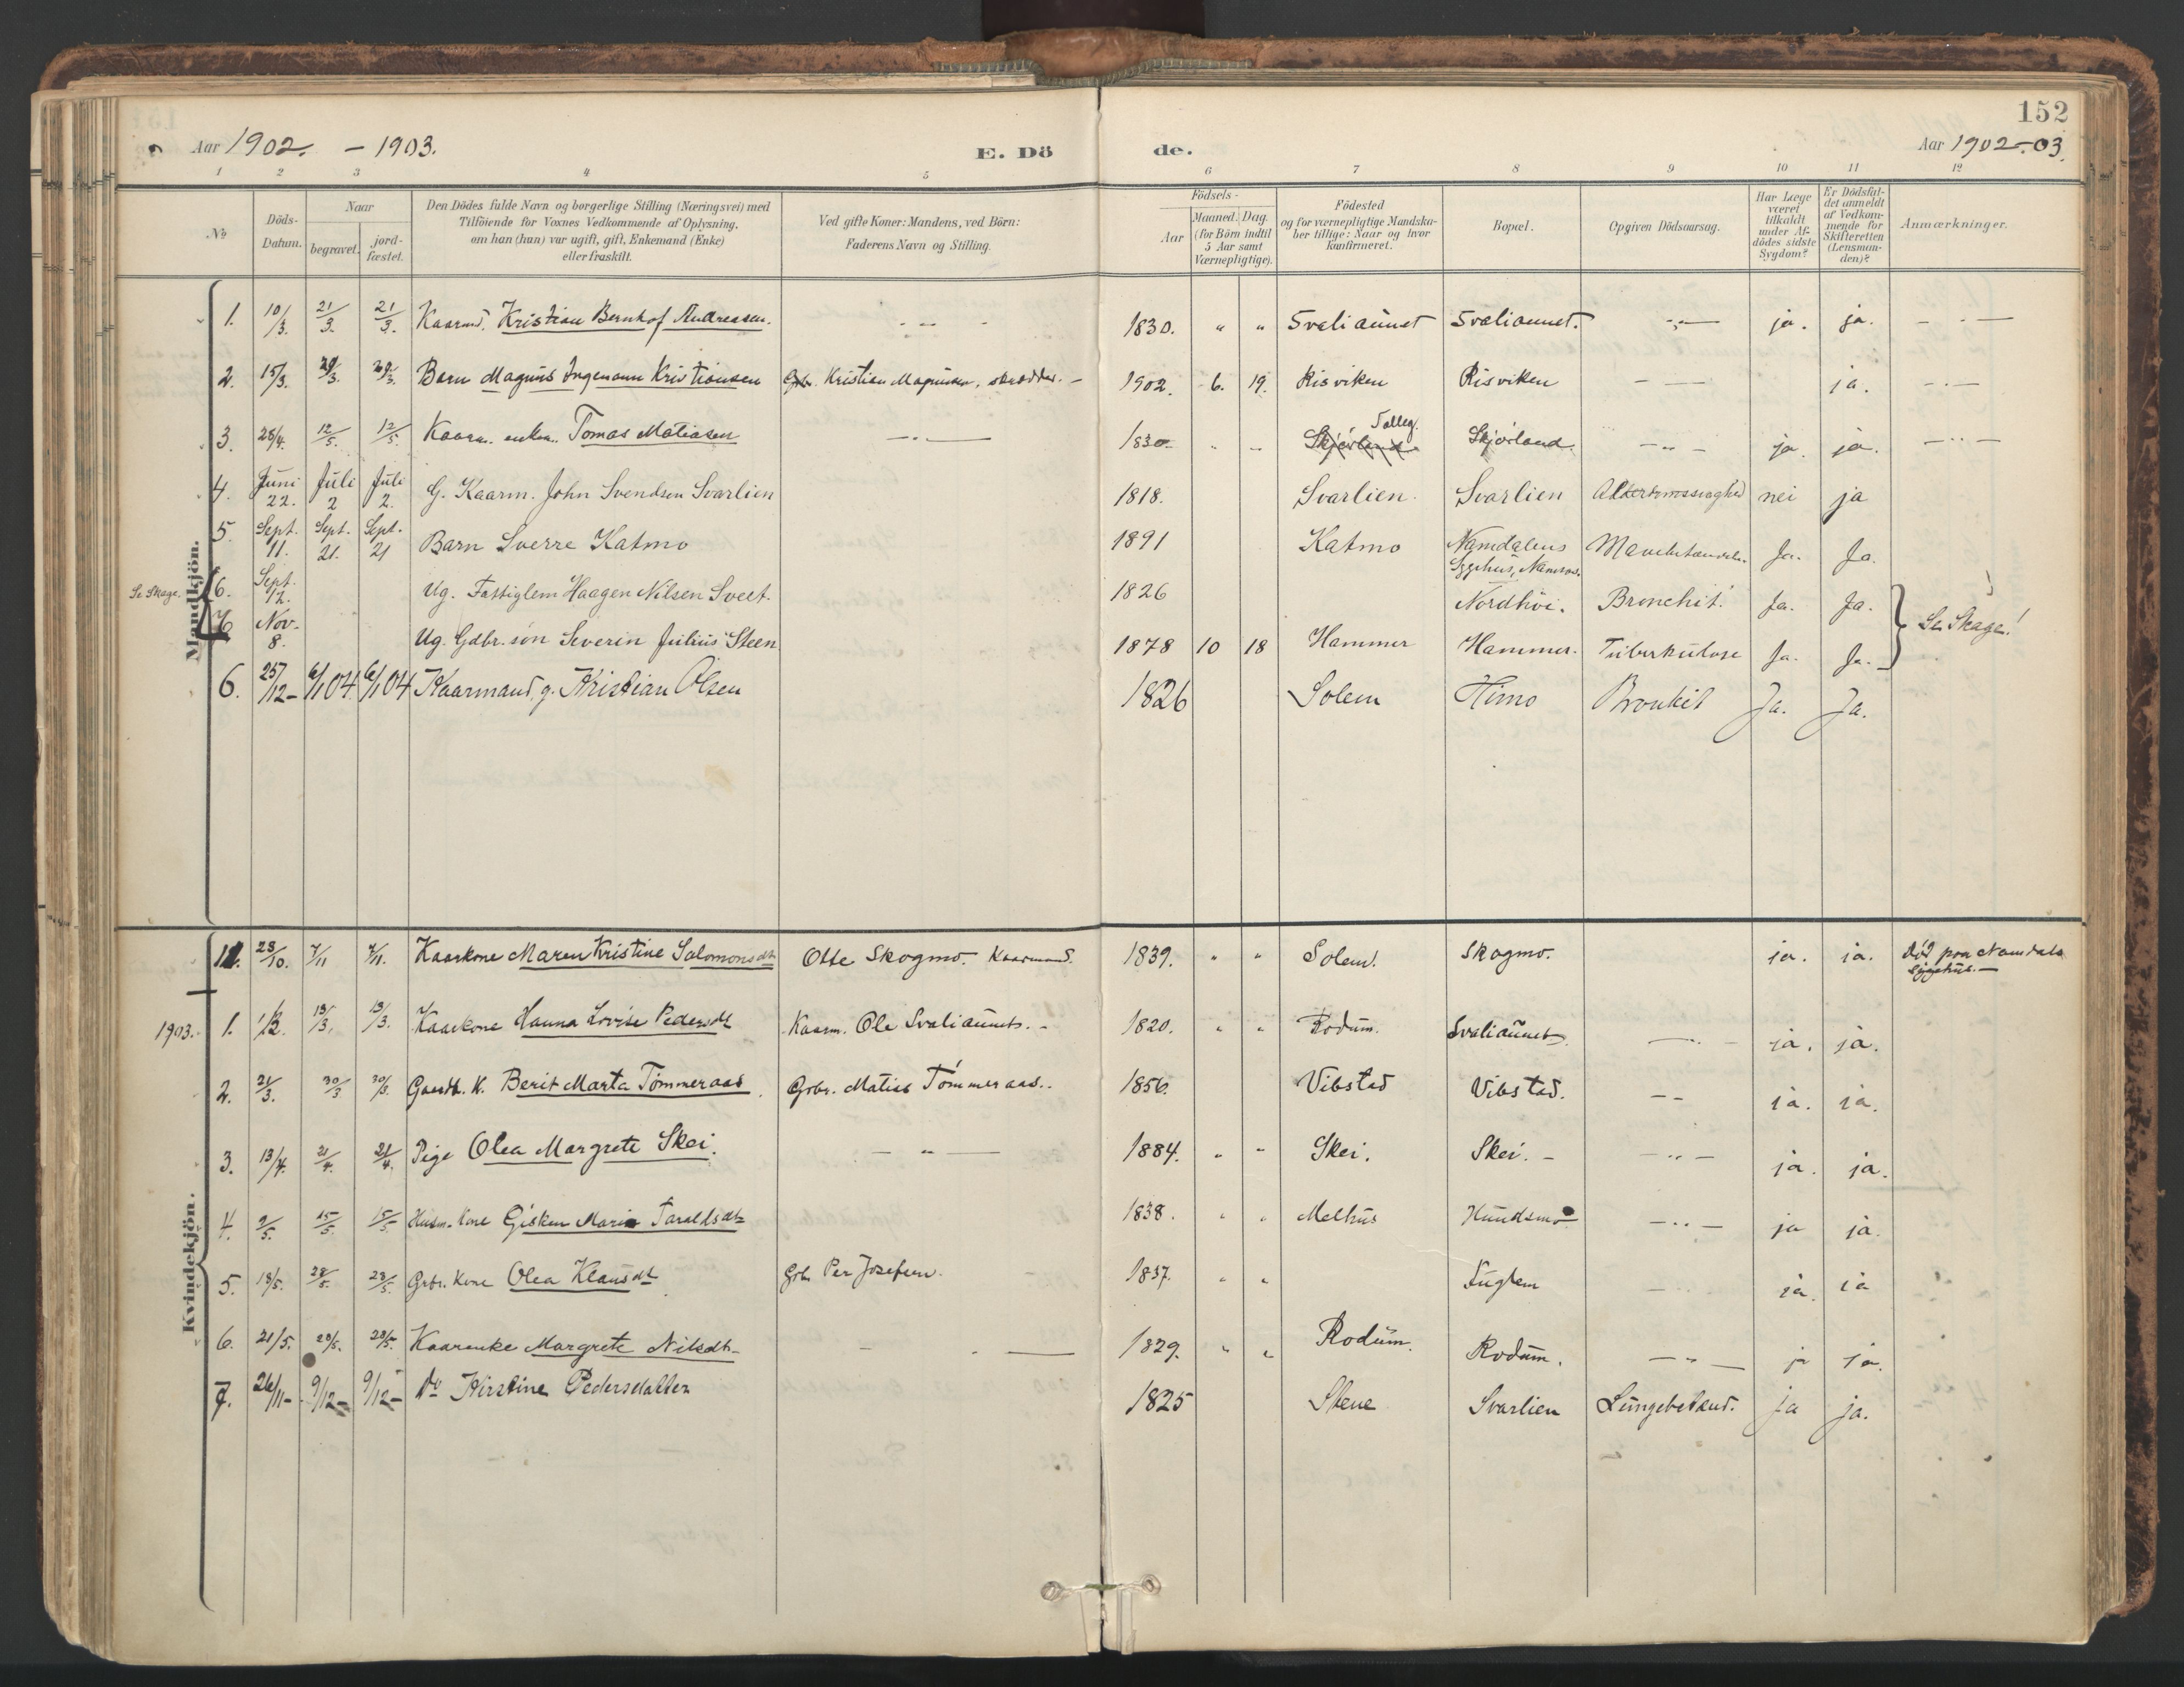 152
Aar 1902. - 1903. E. Dö de. Aar 1902-03.
1 2 3 4 5 6 7 8 9 10 11 12
No Döds-Datum. Naar begravet. jord-fæstet. Den Dödes fulde Navn og borgerlige Stilling (Næringsvei) med Tilföiende for Voxnes Vedkommende af Oplysning, om han (hun) var ugift, gift, Enkemand (Enke) eller fraskilt. Ved gifte Koner: Mandens, ved Börn: Faderens Navn og Stilling. Födsels- Aar Maaned. Dag. (for Börn indtil 5 Aar samt Værnepligtige). Födested og for værnepligtige Mandskaber tillige: Naar og hvor konfirmeret. Bopæl. Opgiven Dödsaarsag. Har Læge været tilkaldt under Afdödes sidste Sygdom? Er Dödsfaldet anmeldt af Vedkommende for Skifteretten (Lensmanden)? Anmærkninger.
Mandkjön.
1. 10/3. 21/3. 21/3. Kaarmd. Kristian Bernhof Andreasen. 1830. " " Svaliaunet Svaliaunet. - " - ja. ja. - " -
2. 15/3. 29/3. 29/3. Barn Magnus Ingemann Kristiansen Gbr. Kristian Magnussen, skrædder. - 1902. 6. 19. Risviken Risviken - - ja. - " -
3. 28/4. 12/5. 12/5. Kaarm. enkem. Tomas Matiasen - " - 1830. " " Skjørland Solleg. Skjørland. - " - ja. ja. - " -
4. Juni 22. Juli 2 Juli 2. G. Kaarm. John Svendsen Svarlien 1818. Svarlien. Svarlien Alderdomssvaghed nei ja
5. Sept. 11. Sept. 21. Sept. 21 Barn Sverre Katmo 1891 Katmo Namdalens Sygehus, Namsos. Ja. Ja.
Se Skage. 6. Sept. 12. Ug. Fattiglem Haagen Nilsen Sveet. 1826 Nordhöi. Bronchit. Ja. Ja.
7 Nov. 8. Ug. Gdbr.søn Severin Julius Steen 1878 10 18 Hammer Hammer. Tuberkulose Ja. Ja. Se Skage!
6. 25/12- 6/1 04. 6/1 04 Kaarmand, g. Kristian Olsen 1826 Solem Himo Bronkit Ja. Ja.
Kvindekjön.
11. 23/10. 7/11 7/11. Kaarkone Maren Kristine Salomonsdt. Otte Skogmo. Kaarmand. 1839. " " Solem. Skogmo. ja. ja. død paa Namdals sygehus. -
1903. 1. 1/3. 13/3. 13/3. Kaarkone Hanna Lovise Pedersdt Kaarm. Ole Svaliaunet. - 1820. " " Rodum. Svaliaunet. - " - ja. ja.
2. 21/3. 30/3 30/3. Gaardb. K. Berit Marta Tømmeraas. Grbr. Matias Tømmeraas. 1856. Vibstad Vibstad. - - ja. ja.
3. 13/4. 21/4. 21/4. Pige Olea Margrete Skei. - " - 1884. " " Skei. Skei. - - " - ja. ja.
4. 9/5. 15/5. 15/5. Husm. kone Gisken Marie Taraldsdt. 1838. " " Melhus Hundsmo - " - ja ja.
5. 18/5. 28/5. 28/5. Grbr. kone Olea Klausdt Grb. Per Josefsen. 1837. " " Fuglem - ja. ja
6. 21/5. 28/5. 28/5. Kaarenke Margrete Nilsdt. - - 1829. " " Rodum. Rodum. - " - ja ja.
7. 26/11- 9/12- 9/12- Do Kirstine Pedersdatter 1825 Stene Svarlien Lungebetænd. ja ja.